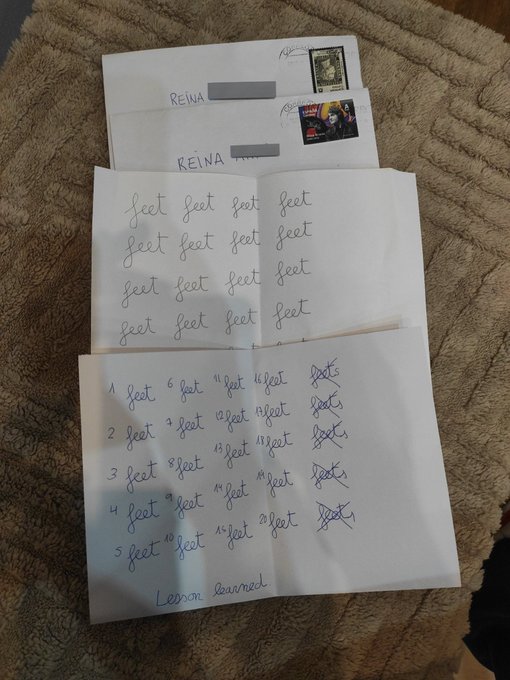 REINA
REINA
feet feet feet feet
feet feet feet feet
feet feet feet feet
feet feet feet feet
1 feet 6 feet 11 feet 16 feet feets
2 feet 7 feet 12 feet 17 feet feets
3 feet 8 feet 13 feet 18 feet feets
4 feet 9 feet 14 feet 19 feet feets
5 feet 10 feet 15 feet 20 feet feets
Lesson learned